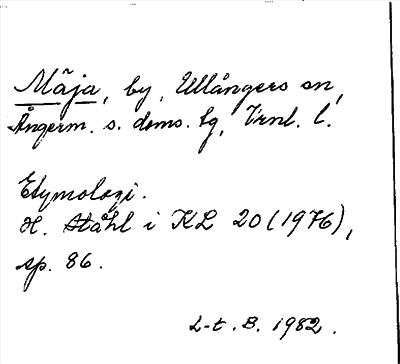 Mäja, by, Ullångers sn,
Ångerm. s. doms. lg, Vrnl. l.
Etymologi.
H. Ståhl i KL 20 (1976),
sp. 86.
L-t. B. 1982.